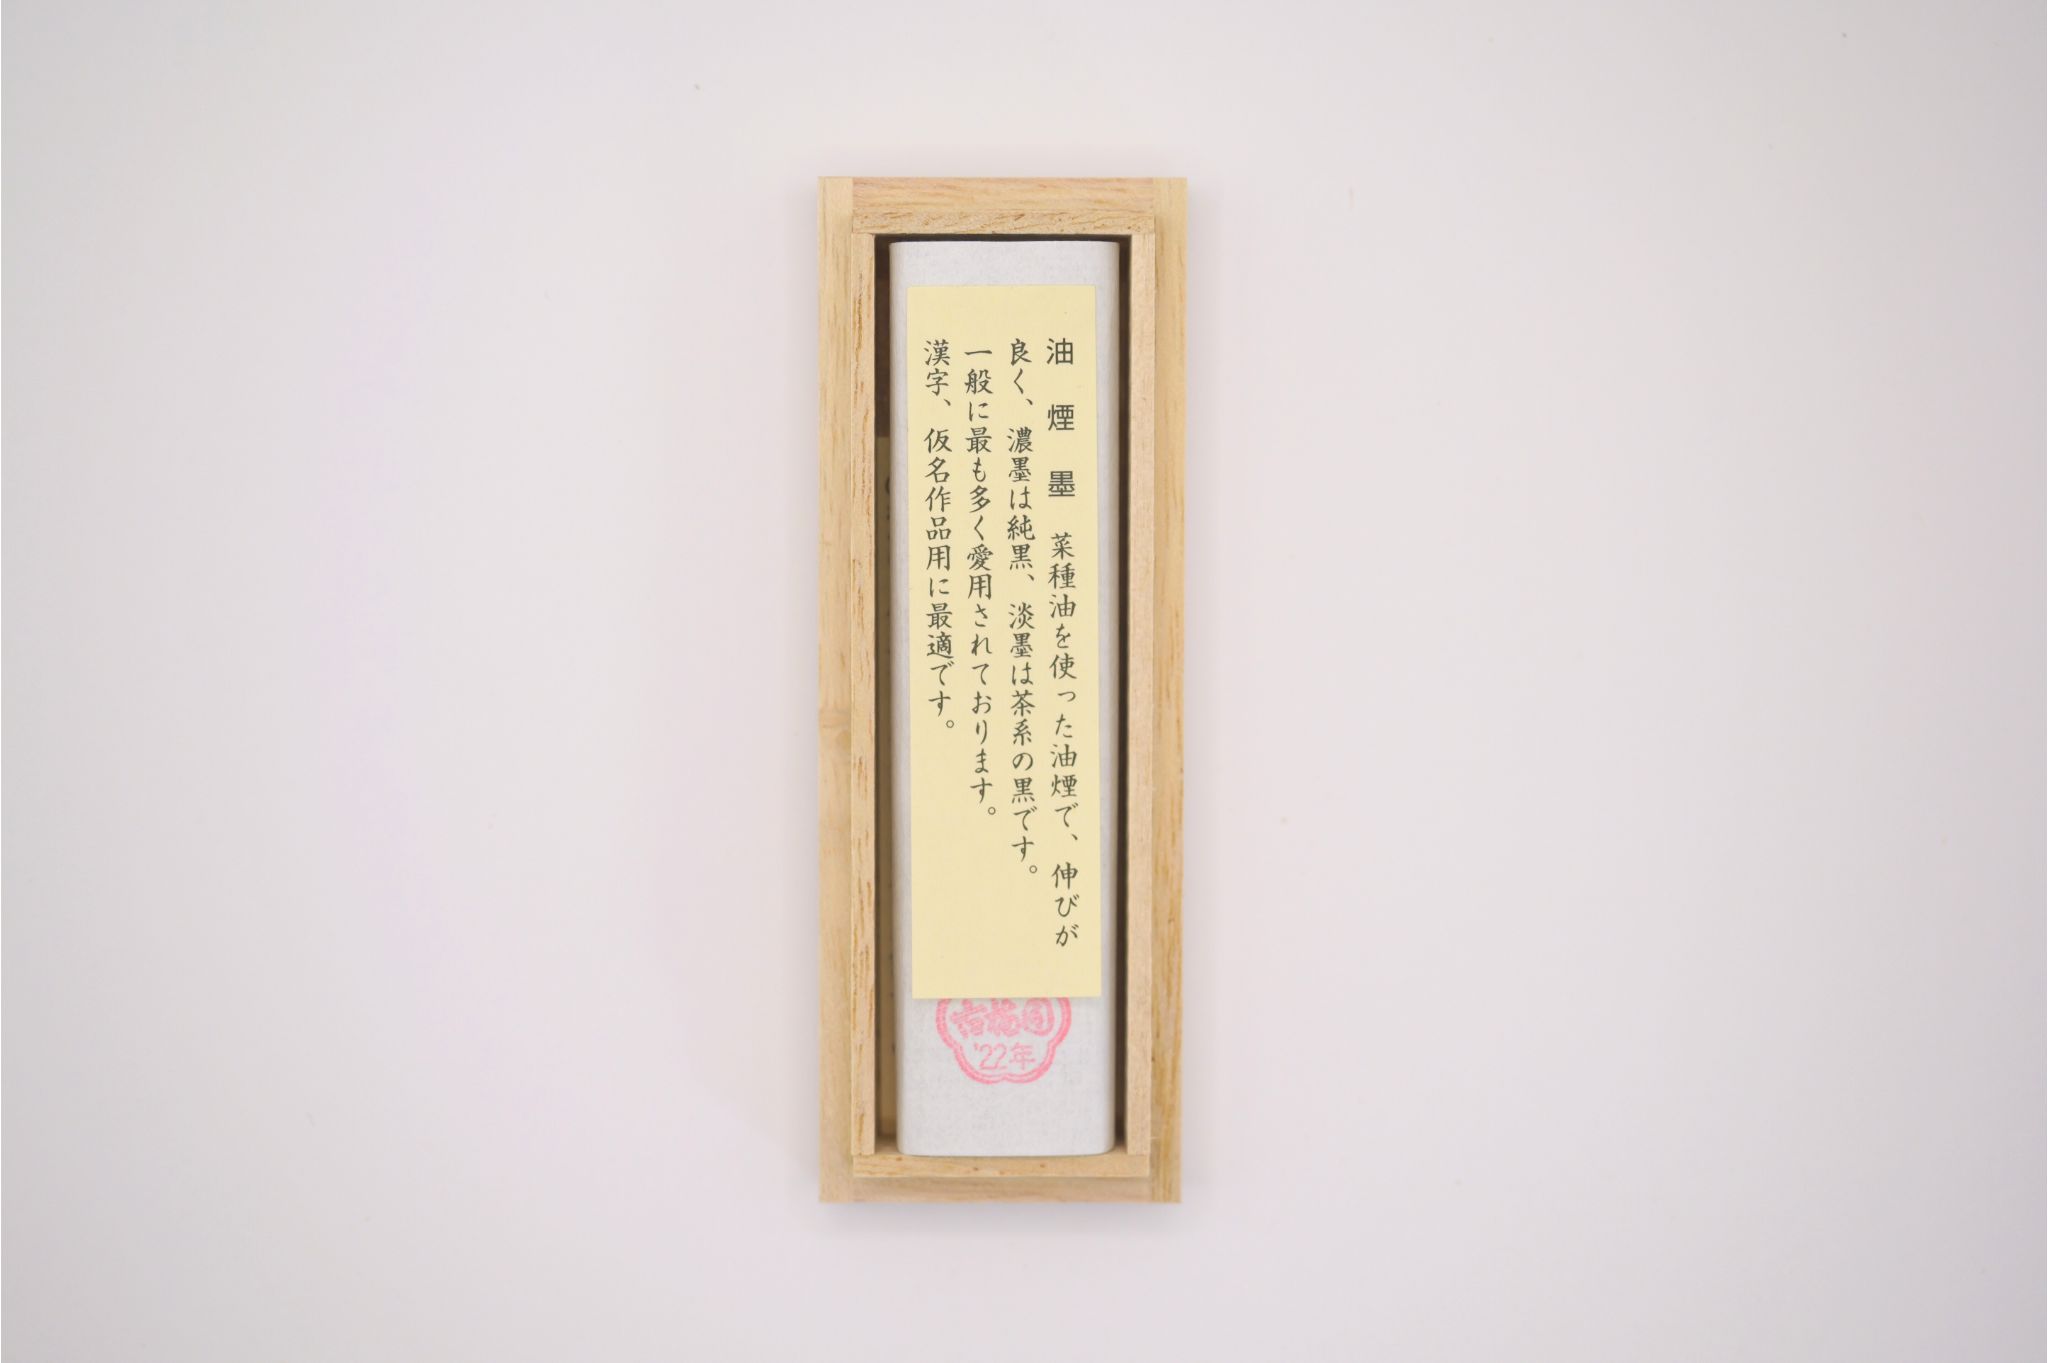 油煙墨 菜種油を使った油煙で、伸びが
良く、濃墨は純黒、淡墨は茶系の黒です。
一般に最も多く愛用されております。
漢字、仮名作品用に最適です。
古梅園
'22年